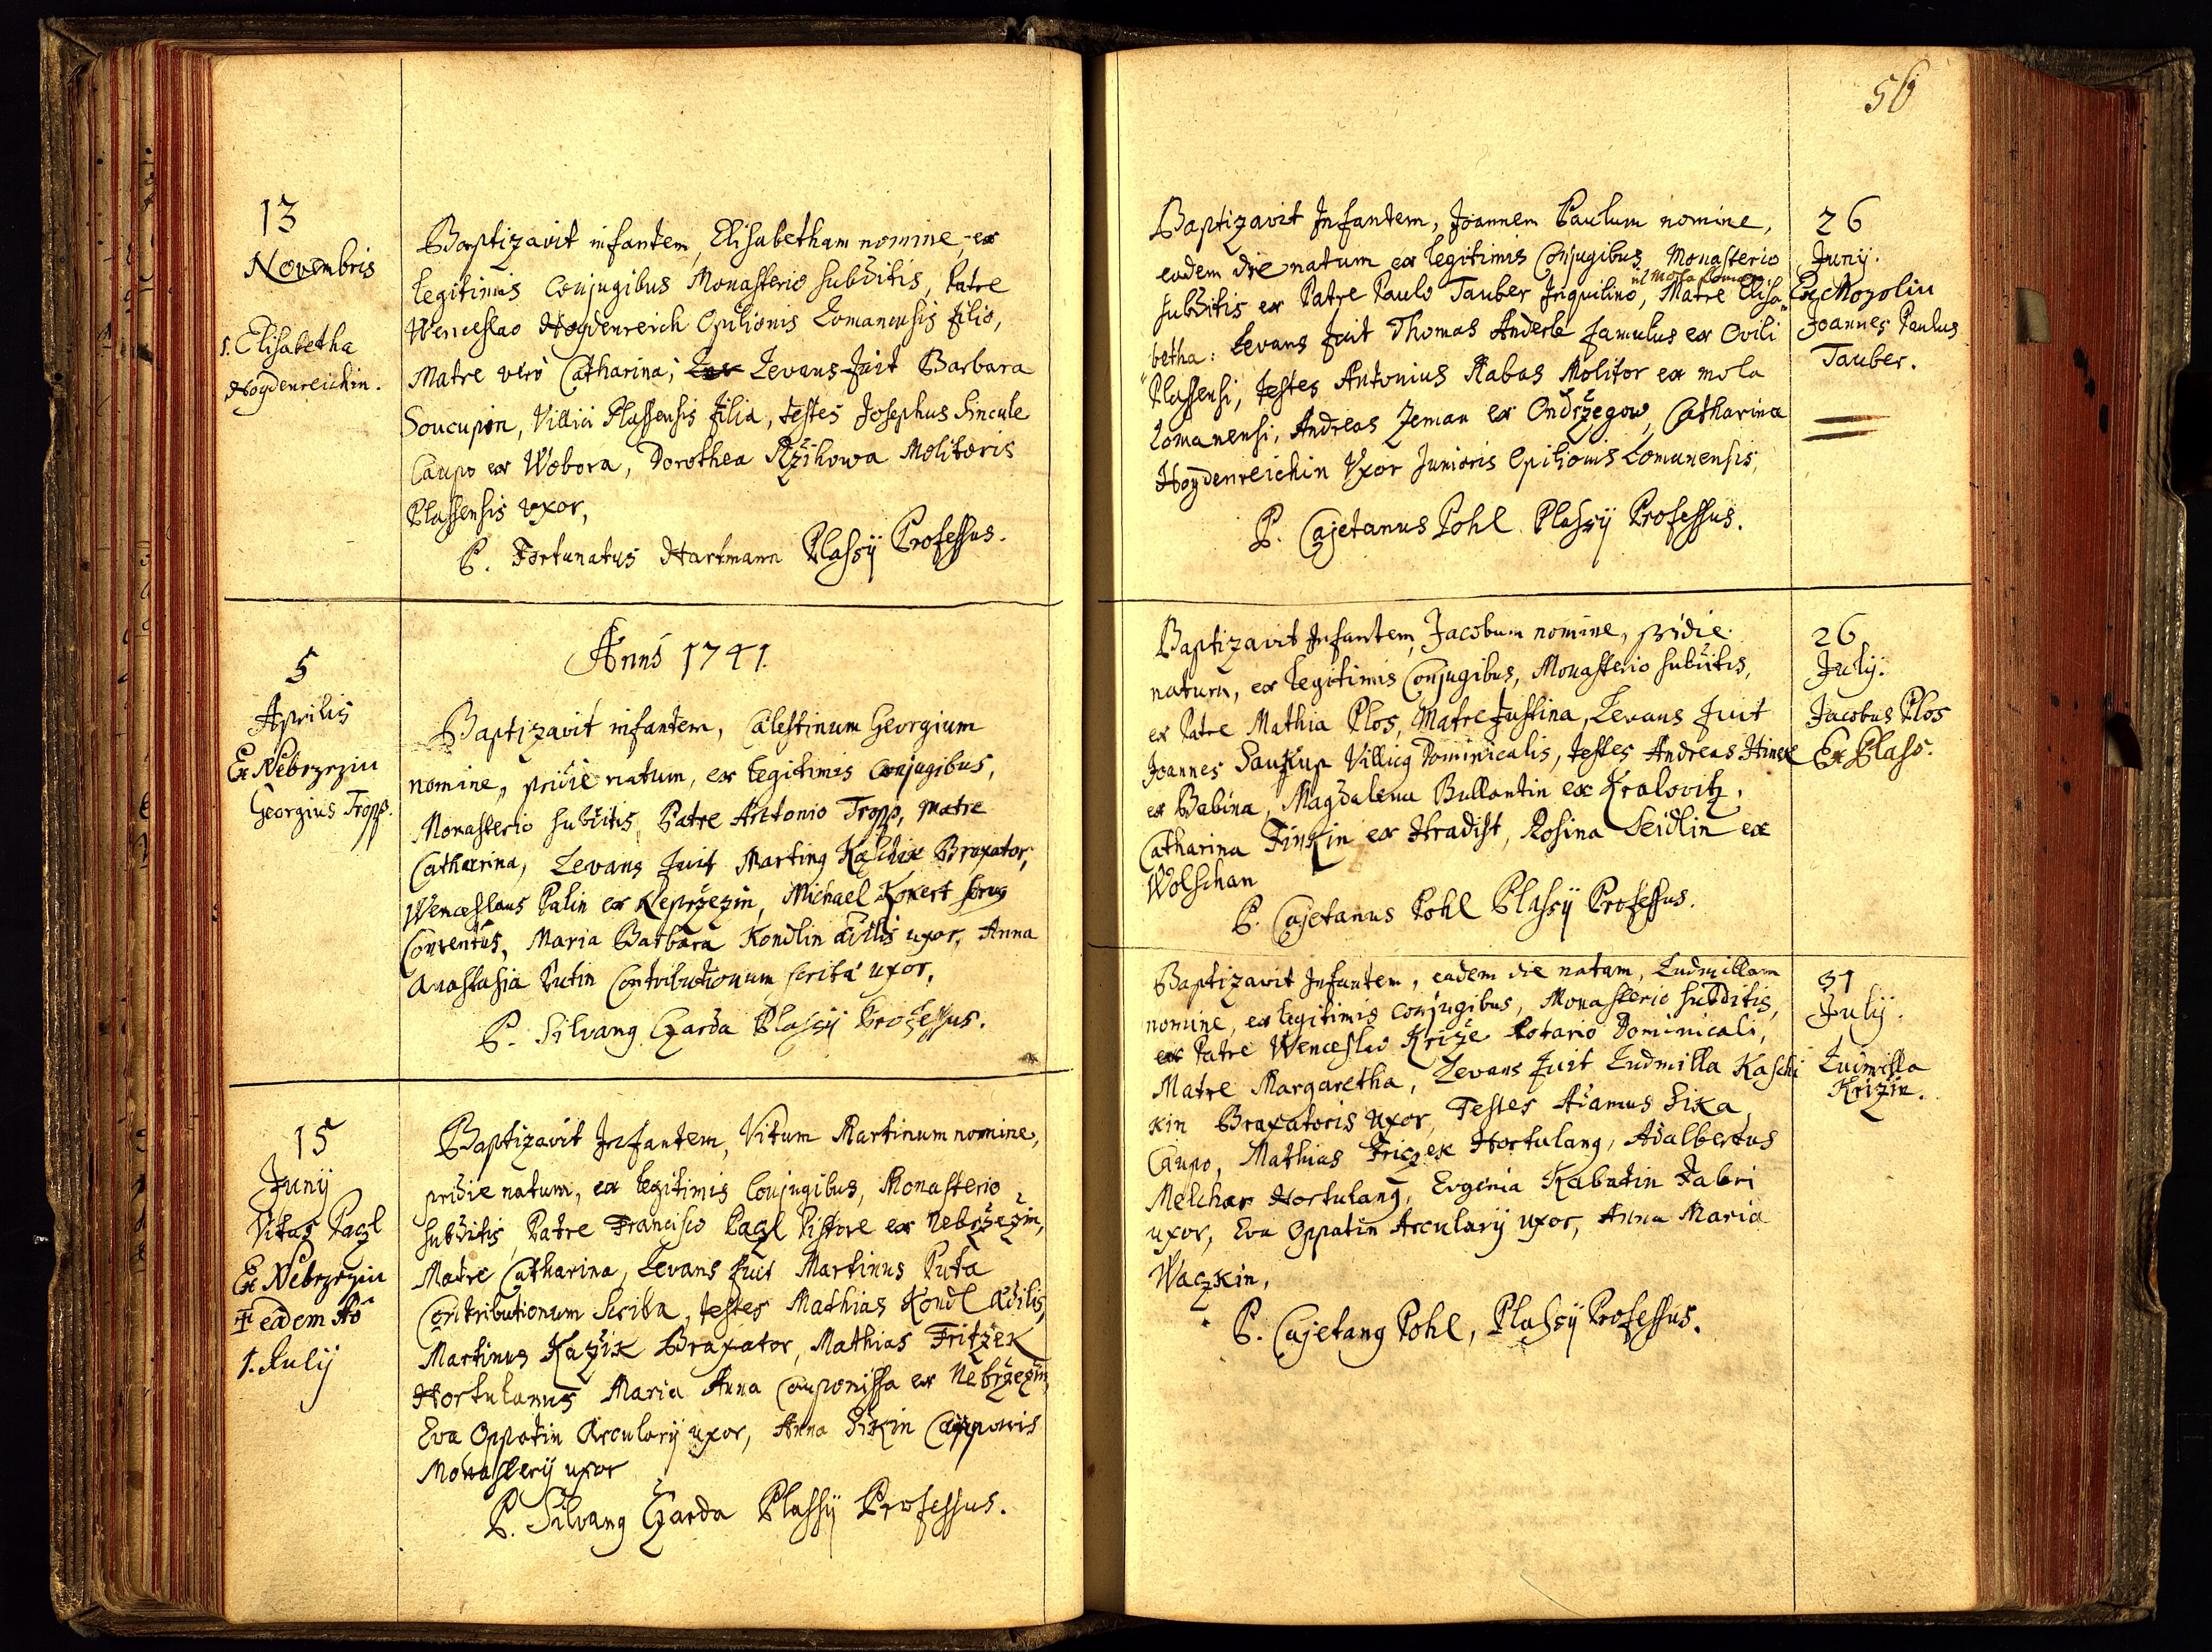 13
Novembris
1. Elisabetha
Hoydenreichin.
Baptizavit infantem, Elisabetham nomine, ex
legitimis Conjugibus Monasterio subditis, Patre
Wenceslao Hoydenreich Opilionis Lomanensis filio,
Matre vero Catharina; Levans fuit Barbara
Soucupin, Villici Plassensis filia, testes Josephus Sincule
Caupo ex Wobora, Dorothea Ržihowa Molitoris
Plassensis uxor,
P. Fortunatus Hartmann Plassÿ Professus.
Anno 1741.
5
Aprilis
Ex Nebrzezin
Georgius Tropp.
Baptizavit infantem, Cælestinum Georgium
nomine, pridie natum, ex legitimis Conjugibus,
Monasterio subditis, Patre Antonio Tropp, Matre
Catharina, Levans fuit Martinq Kaschik Braxator,
Wenceslaus Palin ex Neprzezin, Michael Konert
Conventus, Maria Barbara Kondlin ædilis uxor, Anna
Anastasia Putin Contributionum scribæ uxor,
P. Silvanq Czarda Plassÿ Professus.
15
Junÿ
Vitus Paczl
Ex Nebrzezin
† eadem Aō
1. Julij
Baptizavit Infantem, Vitum Martinum nomine,
pridie natum, ex legitimis Conjugibus, Monasterio
subditis, Patre Francisco Paczl Pistore ex Nebržezin,
Matre Catharina, Levans fuit Martinus Puta
Contributionum Scriba, testes Mathias Kondl ædilis,
Martinus Kažik Braxator, Mathias Fritzek
Hortulanus Maria Anna Cauponissa ex Nebržezin,
Eva Oppatin Arcularÿ uxor, Anna Sikin Cauponis
Monasterÿ uxor
P. Silvanq Czarda Plassÿ Professus.
56
Baptizavit Infantem, Joannem Paulum nomine,
eadem die natum ex legitimis Conjugibus Monasterio
subditis ex Patre Paulo Tauber Inquilino, Matre Elisa"
betha: Levans fuit Thomas Anderle famulus ex Ovili
Plassensi, testes Antonius Rabas Molitor ex mola
Lomanensi, Andreas Zeman ex Ondržegow, Catharina
Hoydenreichin Uxor Junioris Opilionis Lomanensis,
P. Cajetanus Pohl Plassÿ Professus.
26
Junÿ.
Ex Mozolin
Joannes Paulus
Tauber.
Baptizavit Infantem, Jacobum nomine, pridie
natum, ex legitimis Conjugibus, Monasterio subditis,
ex Patre Mathia Plos, Matre Justina, Levans fuit
Joannes Saukup Villicq Dominicalis, testes Andreas Hinek
ex Babina, Magdalena Bullantin ex Kralovitz,
Catharina Finkin ex Hradist, Rosina Seidlin ex
Wolschan
P. Cajetanus Pohl Plassÿ Professus.
26
Julÿ.
Jacobus Plos
Ex Plass.
Baptizavit Infantem, eadem die natam, Ludmillam
nomine, ex legitimis conjugibus, Monasterio subditis,
ex Patre Wenceslao Križe Rotario Dominicali,
Matre Margaretha, Levans fuit Ludmilla Kaschi
kin Braxatoris uxor, Testes Adamus Sika
Caupo, Mathias Friczek Hortulanq, Adalbertus
Melchar Hortulanq, Evgenia Kabutin Fabri
uxor, Eva Oppatin Arcularÿ uxor, Anna Maria
Waczkin,
P. Cajetanq Pohl, Plassÿ Professus.
31
Julÿ.
Ludmilla
Križin.